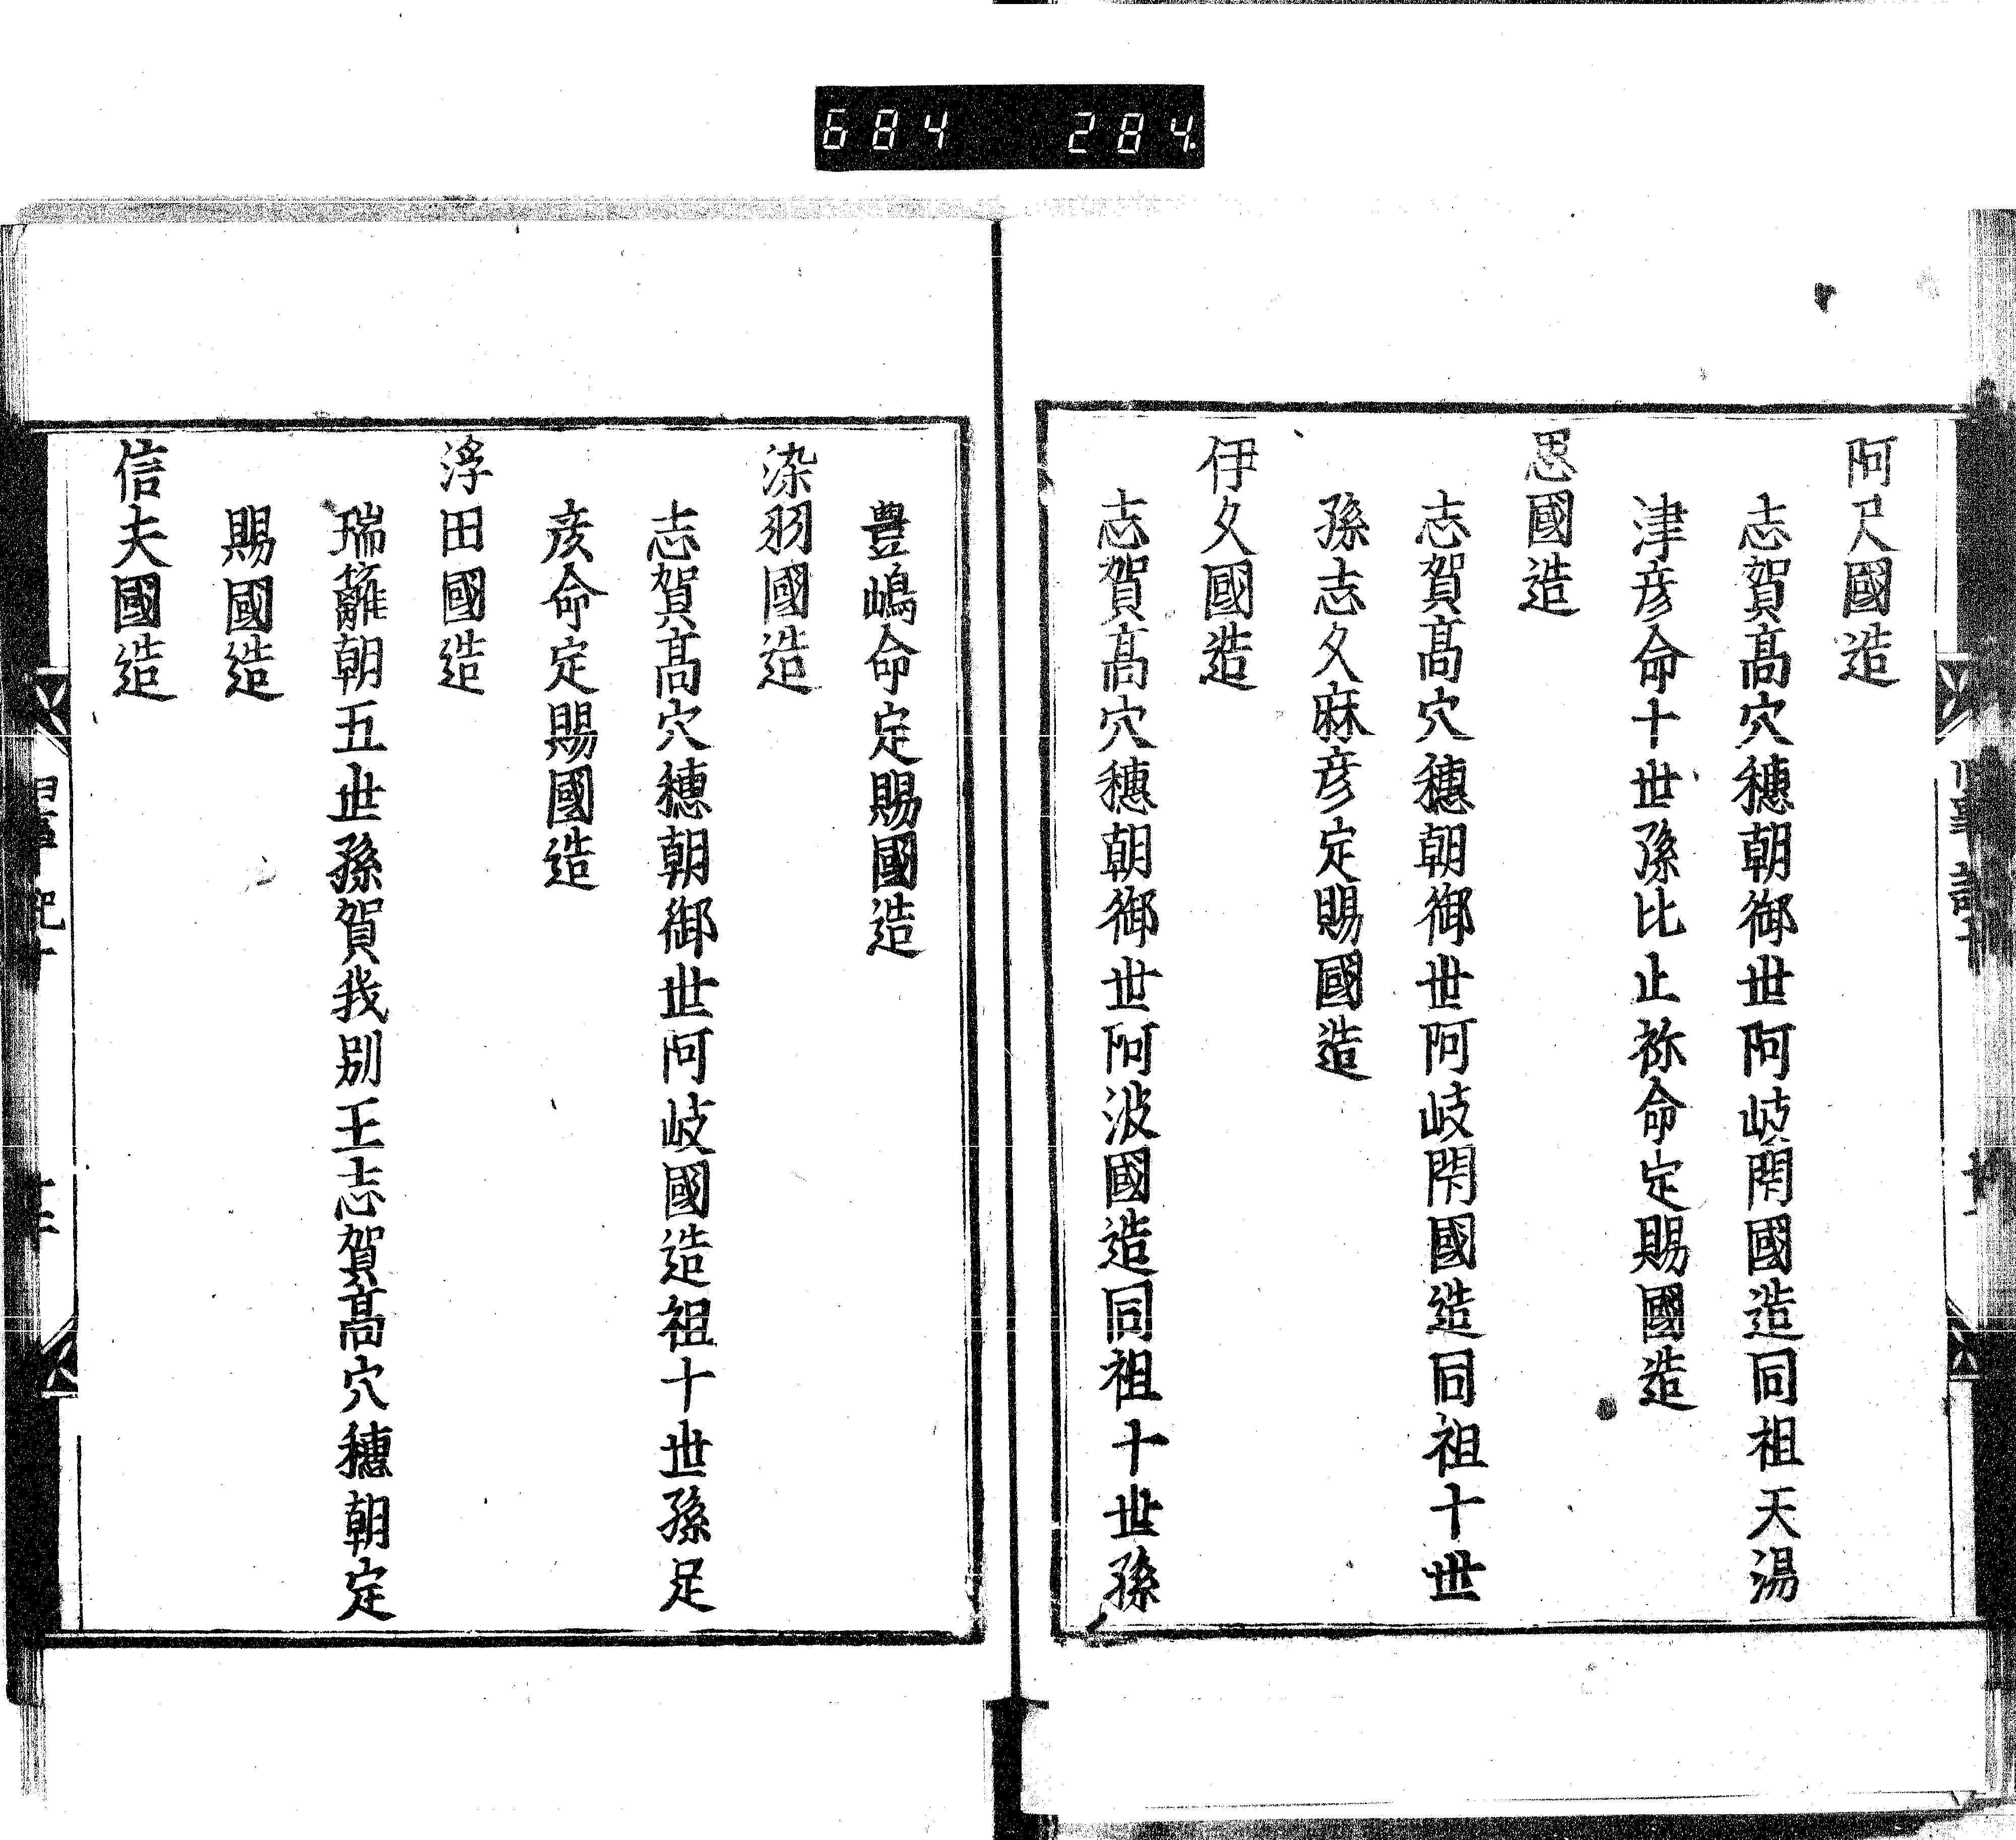 684 284.
阿尺國造
志賀髙穴穗朝御世阿岐閇國造同祖天湯
津彦命十世孫比止祢命定賜國造
思國造
志賀髙穴穗朝御世阿岐閇國造同祖十世
孫志久麻彦定賜國造
伊久國造
志賀髙穴穗朝御世阿波國造同祖十世孫
豊嶋命定賜國造
染羽國造
志賀髙穴穗朝御世阿岐國造祖十世孫足
彦命定賜國造
浮田國造
瑞籬朝五世孫賀我别王志賀髙穴穗朝定
賜國造
信夫國造